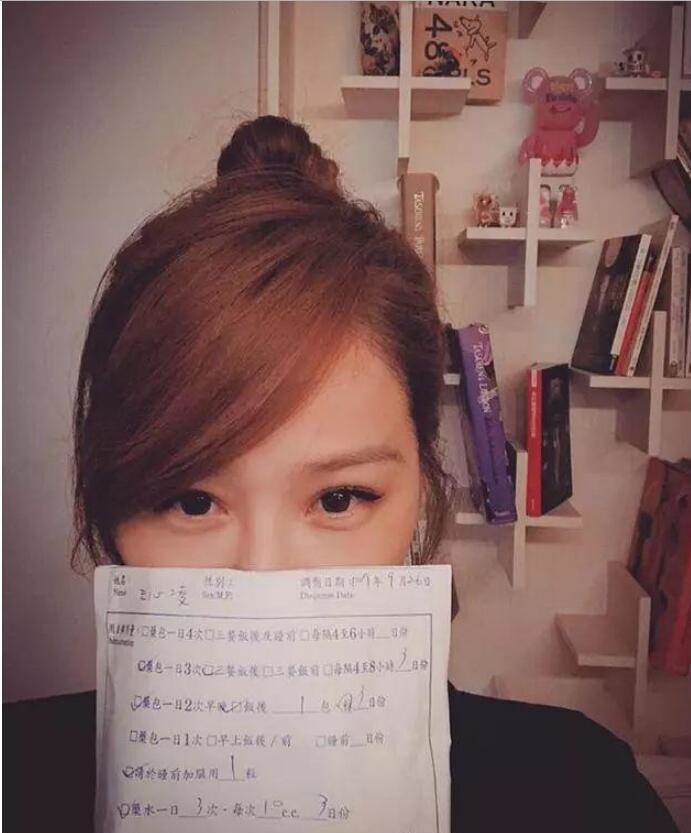 NARA
48
GIRLS
TASCHENS PARIS
TASCHEN'S LONDON
姓名： 性別： 調劑日期 109年9月26日
Name 凌 Sex(M.F) Dispense Date
□藥包一日4次□三餐飯後及睡前□每隔4至6小時__日份
☑藥包一日3次☑三餐飯後□三餐飯前□每隔4至8小時3日份
☑藥包一日2次早晚☑飯後 1 包 3日份
□藥包一日1次□早上飯後/前 □睡前__日份
☑請於睡前加服用 1 粒
☑藥水一日 3 次，每次 10 c.c. 3日份